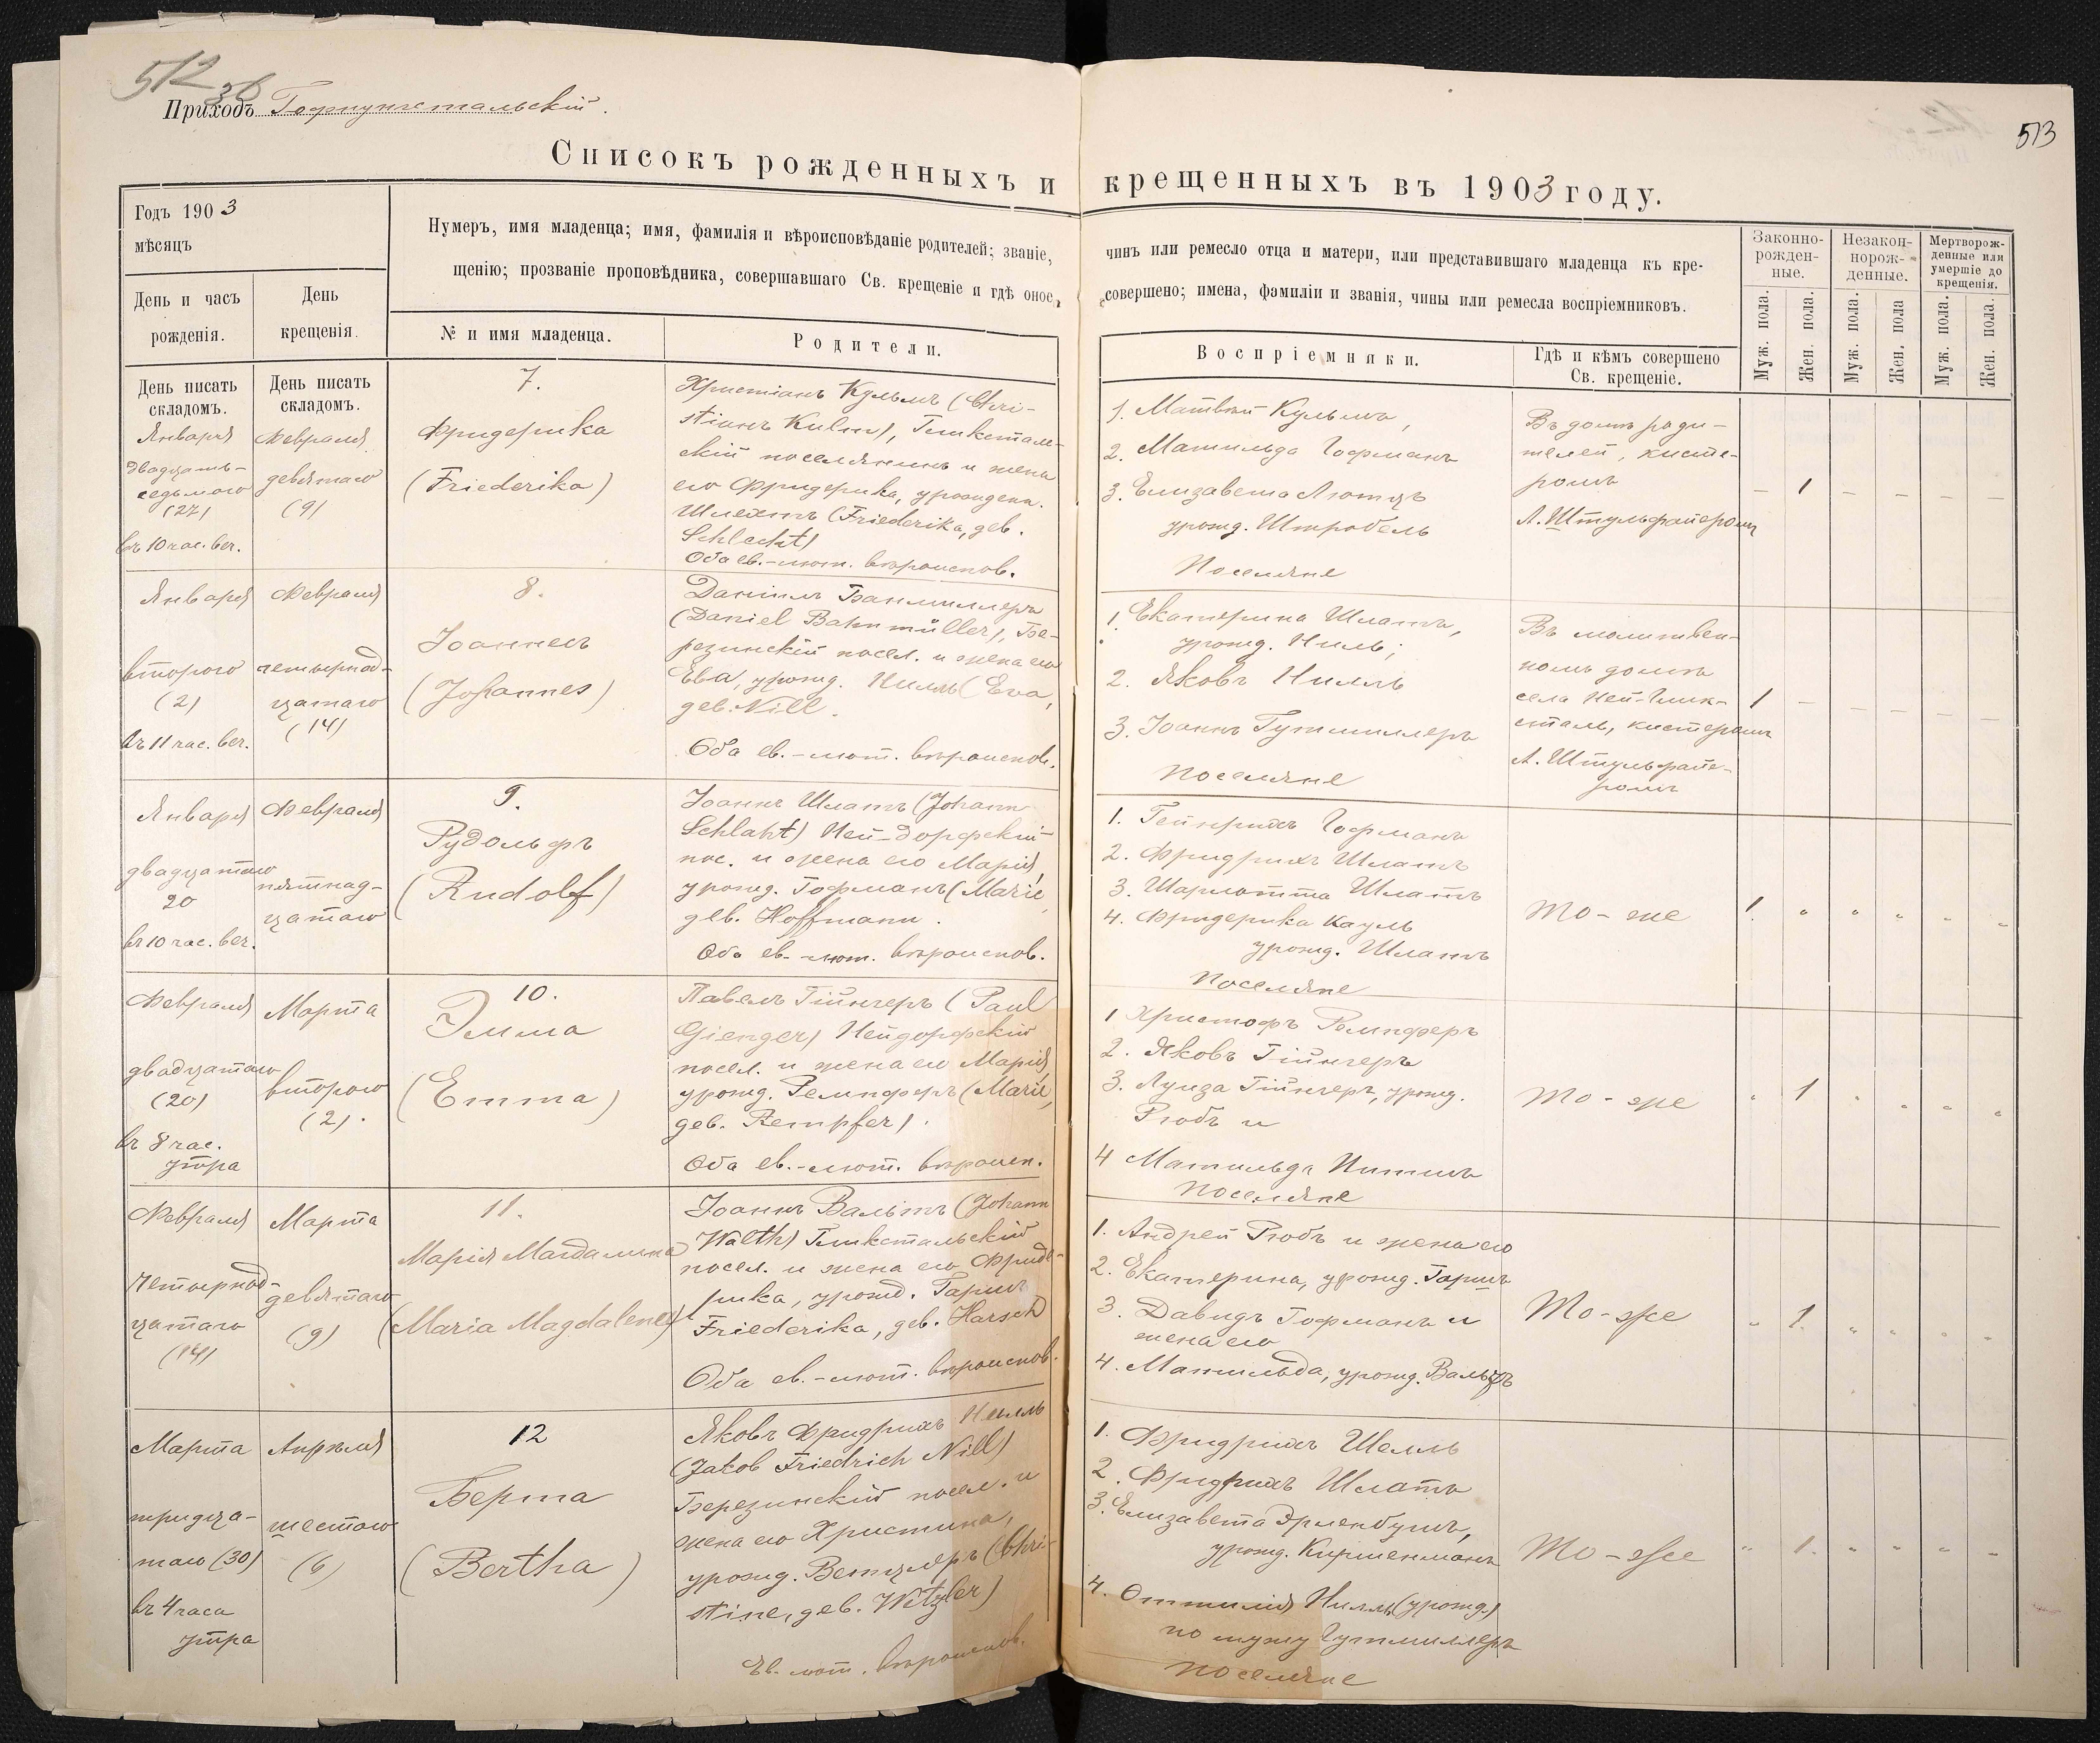 512
36
513
Приходъ Гофнунгстальскій.
Списокъ рожденныхъ и крещенныхъ въ 1903 году.
Годъ 1903
мѣсяцъ
День и часъ
рожденія.
День
крещенія.
Нумеръ, имя младенца; имя, фамилія и вѣроисповѣданіе родителей; званіе,
щенію; прозваніе проповѣдника, совершавшаго Св. крещеніе и гдѣ оное
№ и имя младенца.
Родители.
чинъ или ремесло отца и матери, или представившаго младенца къ кре-
совершено; имена, фамиліи и званія, чины или ремесла воспріемниковъ.
Воспріемники.
Гдѣ и кѣмъ совершено
Св. крещеніе.
Законно-
рожден-
ные.
Незакон-
норож-
денные.
Мертворож-
денные или
умершіе до
крещенія.
Муж. пола.
Жен. пола.
Муж. пола.
Жен. пола
Муж. пола.
Жен. пола.
День писать
складомъ.
День писать
складомъ.
Января
двадцать-
седьмого
(27)
въ 10 час. веч.
Февраля
девятаго
(9)
7.
Фридерика
(Friederika)
Христіанъ Кульмъ (Chri-
stian Kulm), Гликсталь-
скій поселянинъ и жена
его Фридерика, урожден.
Шлехтъ (Friederika, geb.
Schlecht)
Оба ев.-лют. вѣроиспов.
1. Матвѣй Кульмъ,
2. Матильда Гофманъ
3. Елизавета Лютцъ
урожд. Штробель
Поселяне
Въ домѣ роди-
телей, кисте-
ромъ
А. Штульфайеромъ
– 1 – – – –
Января
второго
(2)
въ 11 час. веч.
Февраля
четырнад-
цатаго
(14)
8.
Іоаннесъ
(Johannes)
Даніилъ Банмиллеръ
(Daniel Bahnmüller), Бе-
резинскій посел. и жена его
Ева, урожд. Нилль (Eva,
geb. Nill.
Оба ев.-лют. вѣроиспов.
1. Екатерина Шлатъ,
урожд. Ниль;
2. Яковъ Нилль
3. Іоаннъ Гутмиллеръ
Поселяне
Въ молитвен-
номъ домѣ
села Ней-Глик-
сталь, кистеромъ
А. Штульфайе-
ромъ
1 – – – – –
Января
двадцатаго
20
въ 10 час. веч.
Февраля
пятнад-
цатаго
9.
Рудольфъ
(Rudolf)
Іоаннъ Шлатъ (Johann
Schlaht) Ней-дорфскій
пос. и жена его Марія,
урожд. Гофманъ (Marie,
geb. Hoffmann.
Оба ев.-лют. вѣроиспов.
1. Гейнрихъ Гофманъ
2. Фридрихъ Шлатъ
3. Шарлотта Шлатъ
4. Фридерика Кауль
урожд. Шлатъ
Поселяне
То-же
1. " " " " "
Февраля
двадцатаго
(20)
въ 8 час.
утра
Марта
второго
(2).
10.
Эмма
(Emma)
Павелъ Гійнгеръ (Paul
Gienger) Нейдорфскій
посел. и жена его Марія,
урожд. Ремпферъ (Marie,
geb. Rempfer).
Оба ев.-лют. вѣроисп.
1 Христофъ Ремпферъ
2. Яковъ Гійнгеръ
3. Луиза Гійнгеръ, урожд.
Рюбъ и
4 Матильда
Поселяне
То-же
" 1 " " " "
Февраля
четырнад-
цатаго
(14)
Марта
девятаго
(9)
11.
Марія Магдалина
(Maria Magdalene)
Іоаннъ Вальтъ (Johann
Walth) Гликстальскій
посел. и жена его Фриде-
рика, урожд. Гаршъ
Friederika, geb. Harsch
Оба ев.-лют. вѣроиспов.
1. Андрей Рюбъ и жена его
2. Екатерина, урожд. Гаршъ
3. Давидъ Гофманъ и
жена его
4. Матильда, урожд. Вальтъ
То-же
" 1. " " " "
Марта
тридца-
таго (30)
въ 4 часа
утра
Апрѣля
шестого
(6)
12
Берта
(Bertha)
Яковъ Фридрихъ Нилль
(Jakob Friedrich Nill)
Березинскій посел. и
жена его Христина,
урожд. Ветцлеръ (Chri-
stine, geb. Wetzler)
Ев. лют. вѣроиспов.
1. Фридрихъ Шелль
2. Фридрихъ Шлатъ
3. Елизавета Эрленбушъ,
урожд. Киршенманъ
4. Оттилія Нилль (урожд.)
по мужу Гутмиллеръ
Поселяне
То-же
" 1. " " " "